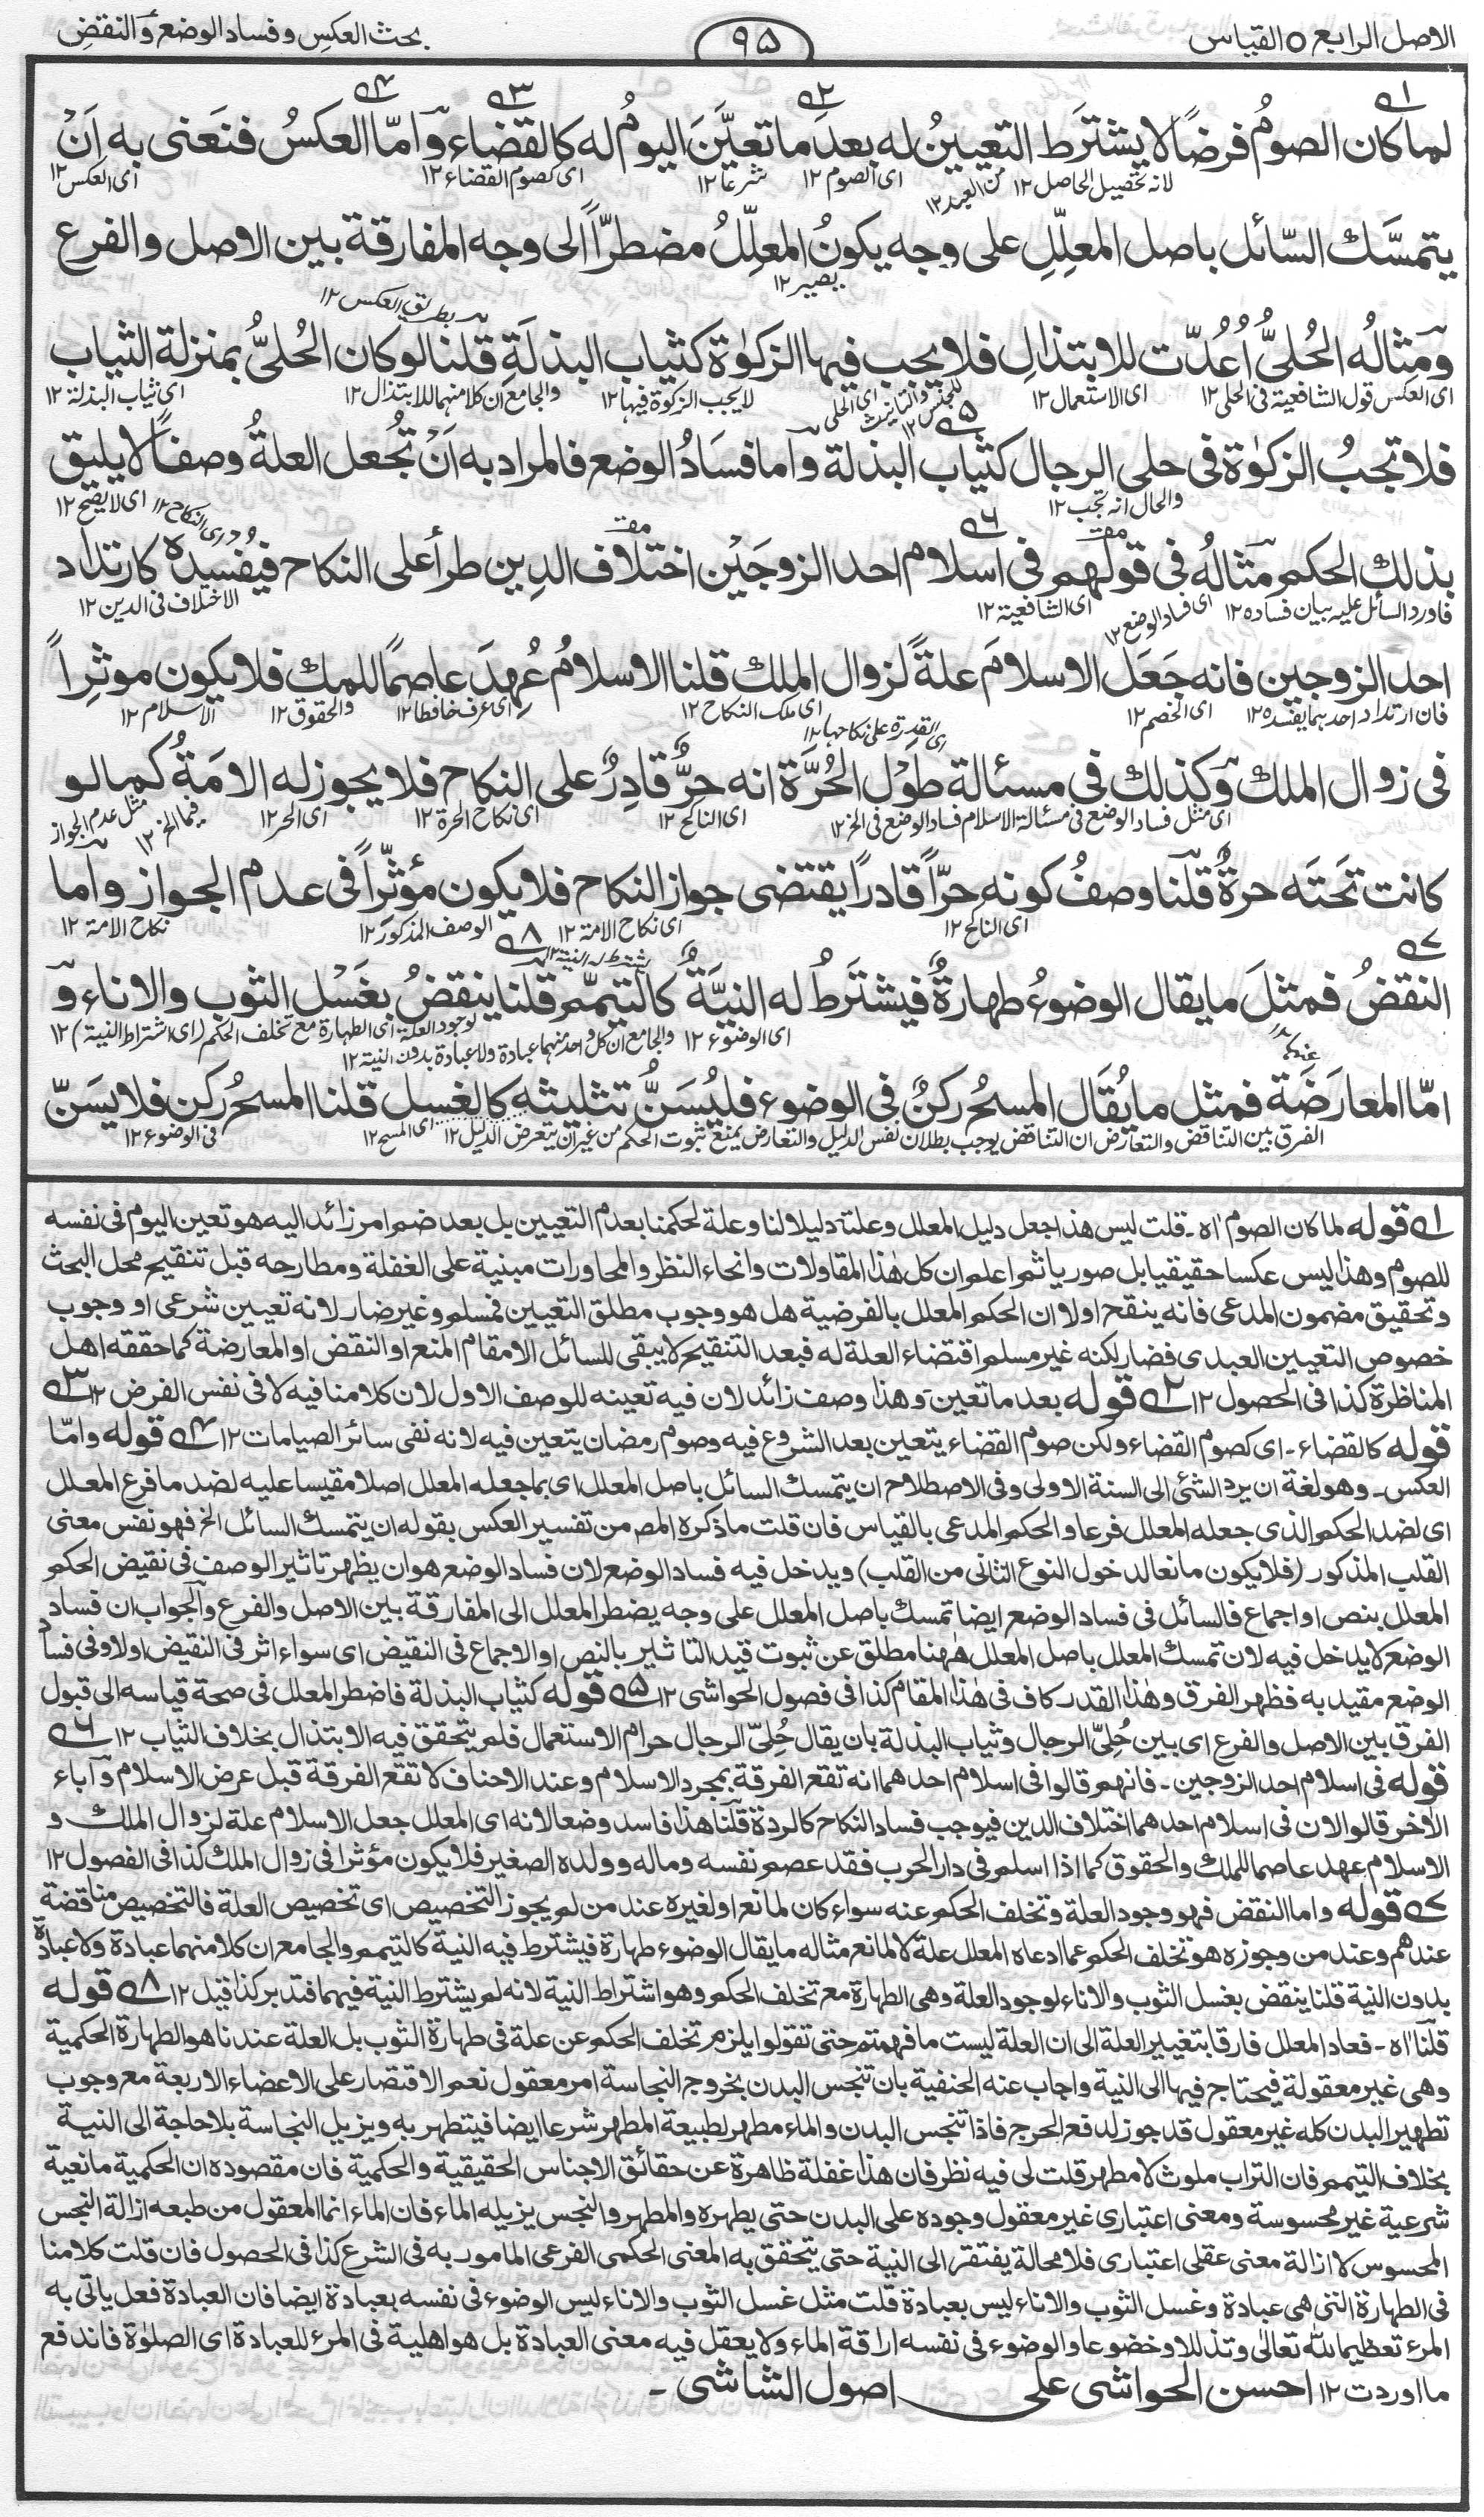 الاصل الرابع ○ القياس
٩٥
بحث العكس وفساد الوضع والنقض
لما كان الصومُ فرضًا لا يشترَط التعيينُ له بعد ما تعيَّنَ اليومُ له كالقضاء وامّا العكسُ فنَعنى به اَنْ
لانه تحصيل الحاصل ١٢ من العبد ١٢ اى الصوم ١٢ شرعا ١٢ اى كصوم القضاء ١٢ اى العكس ١٢
يتمسَّك السّائل باصل المعلِّلِ على وجه يكونُ المعلِّلُ مضطرًّا الى وجه المفارقة بين الاصل والفرع
يصير ١٢
بطريق العكس ١٢
ومثالُه الحُلىُّ اُعُدّت للابتذالِ فلا يجب فيها الزكوٰة كثياب البذلَةِ قلنا لو كان الحُلىُّ بمنزلة الثياب
اى العكس قول الشافعية فى الحلى ١٢ اى الاستعمال ١٢ اى الحلى لا يجب الزكوة فيها ١٢ والجامع ان كلا منهما للابتذال ١٢ اى ثياب البذلة ١٢
فلا تجبُ الزكوٰة فى حلى الرجال كثياب البذلة واما فسَادُ الوضع فالمراد به اَنْ تُجعل العلةُ وصفًا لا يليق
والحال انه تجب ١٢ اى لا يصح ١٢
بذلك الحكم مثالهُ فى قولهم فى اسلام احد الزوجَيْن اختلاف الدِين طرأ على النكاح فيُفسِدُه كارتداد
فاورد السائل عليه بيان فساده ١٢ اى فساد الوضع ١٢ اى الشافعية ١٢ الاختلاف فى الدين ١٢
احد الزوجين فانه جَعَل الاسلامَ علةً لزوال الملك قلنا الاسلامُ عُهِدَ عاصمًا للملك فلا يكون موثِرًا
فان ارتداد احدهما يفسده ١٢ اى الخصم ١٢ اى ملك النكاح ١٢ اى عرف حافظا ١٢ والحقوق ١٢ الاسلام ١٢
اى القدرة على نكاحها ١٢
فى زوال الملك وكذلك فى مسئالة طَوْلِ الحُرَّة انه حرٌّ قادِرٌ على النكاح فلا يجوز له الامَةُ كما لو
اى مثل فساد الوضع فى مسئالة الاسلام فساد الوضع فى الخ ١٢ اى الناكح ١٢ اى نكاح الحرة ١٢ اى الحر ١٢ مثل عدم الجواز
كانت تَحتَه حرةٌ قلنا وصفُ كونه حرًّا قادرًا يقتضى جواز النكاح فلا يكون مؤثّرًا فى عدم الجواز واما
اى الناكح ١٢ اى نكاح الامة ١٢ الوصف المذكور ١٢ نكاح الامة ١٢
النقضُ فمثلَ ما يقال الوضوءُ طهارةٌ فيشترَطُ له النيَّةُ كالتيمّم قلنا ينقضُ بغَسْل الثوب والاناء و
اى الوضوء ١٢ والجامع ان كل واحد منهما عبادة ولا عبادة بدون النية ١٢ لوجود العلة اى الطهارة مع تخلف الحكم (اى اشتراط النية) ١٢
عندكم
امّا المعارَضَة فمثل ما يُقَال المسحُ ركنٌ فى الوضوء فليُسَنُّ تثليثه كالغسل قلنا المسحُ ركن فلا يسَنّ
الفرق بين التناقض والتعارض ان التناقض يوجب بطلان نفس الدليل والتعارض يمنع ثبوت الحكم من غير ان يتعرض الدليل ١٢ اى المسح ١٢ فى الوضوء ١٢
١ قوله لما كان الصوم اه ـ قلت ليس هذا جعل دليل المعلل وعلته دليلا لنا وعلة لحكمنا بعدم التعيين بل بعد ضم امر زائد اليه هو تعين اليوم فى نفسه
للصوم وهذا ليس عكسا حقيقيا بل صوريا ثم اعلم ان كل هذا المقاولات وانحاء النظر والمحاورات مبنية على الغفلة ومطارحه قبل تنقيح محل البحث
وتحقيق مضمون المدعى فانه ينقح اولا ان الحكم المعلل بالفرضية هل هو وجوب مطلق التعيين فمسلم وغير ضار لانه تعيين شرعى او وجوب
خصوص التعيين العبدى فضار لكنه غير مسلم اقتضاء العلة له فبعد التنقيح لا يبقى للسائل الا مقام المنع او النقض او المعارضة كما حققه اهل
المناظرة كذا فى الحصول ١٢ ٢ قوله بعد ما تعين وهذا وصف زائد لان فيه تعينه للوصف الاول لان كلامنا فيه لا فى نفس الفرض ١٢ ٣
قوله كالقضاء ـ اى كصوم القضاء ولكن صوم القضاء يتعين بعد الشروع فيه وصوم رمضان يتعين فيه لانه نفى سائر الصيامات ١٢ ٤ قوله وامّا
العكس ـ وهو لغة ان يرد الشئ الى السنة الاولى وفى الاصطلاح ان يتمسك السائل باصل المعلل اى بما جعله المعلل اصلا مقيسا عليه لضد ما فرع المعلل
اى لضد الحكم الذى جعله المعلل فرعا والحكم المدعى بالقياس فان قلت ما ذكره المص من تفسير العكس بقوله ان يتمسك السائل الخ فهو نفس معنى
القلب المذكور (فلا يكون مانعا لدخول النوع الثانى من القلب) ويدخل فيه فساد الوضع لان فساد الوضع هو ان يظهر تاثير الوصف فى نقيض الحكم
المعلل بنص او اجماع فالسائل فى فساد الوضع ايضا تمسك باصل المعلل على وجه يضطر المعلل الى المفارقة بين الاصل والفرع والجواب ان فساد
الوضع لا يدخل فيه لان تمسك المعلل باصل المعلل ههنا مطلق عن ثبوت قيد التاثير بالنص او الاجماع فى النقيض اى سواء اثر فى النقيض اولا وفى فساد
الوضع مقيد به فظهر الفرق وهذا القدر كاف فى هذا المقام كذا فى فصول الحواشى ١٢ ٥ قوله كثياب البذلة فاضطر المعلل فى صحة قياسه الى قبول
الفرق بين الاصل والفرع اى بين حُلِىّ الرجال وثياب البذلة بان يقال حُلِىّ الرجال حرام الاستعمال فلم يتحقق فيه الابتذال بخلاف الثياب ١٢ ٦
قوله فى اسلام احد الزوجين ـ فانهم قالوا فى اسلام احدهما انه تقع الفرقة بمجرد الاسلام وعند الاحناف لا تقع الفرقة قبل عرض الاسلام وآباء
الآخر قالوا لان فى اسلام احدهما اختلاف الدين فيوجب فساد النكاح كالردة قلنا هذا فاسد وضعا لانه اى المعلل جعل الاسلام علة لزوال الملك و
الاسلام عهد عاصما للملك والحقوق كما اذا اسلم فى دار الحرب فقد عصم نفسه وماله وولده الصغير فلا يكون مؤثرا فى زوال الملك كذا فى الفصول ١٢
٧ قوله واما النقض فهو وجود العلة وتخلف الحكم عنه سواء كان لمانع او لغيره عند من لم يجوز التخصيص اى تخصيص العلة فالتخصيص مناقضة
عندهم وعند من وجوزه هو تخلف الحكم عما ادعاه المعلل علة لا لمانع مثاله ما يقال الوضوء طهارة فيشترط فيه النية كالتيمم والجامع ان كلا منهما عبادة ولا عبادة
بدون النية قلنا ينقض بغسل الثوب والاناء لوجود العلة وهى الطهارة مع تخلف الحكم وهو اشتراط النية لانه لم يشترط النية فيهما فتدبر كذا قيل ١٢ ٨ قوله
قلنا اه ـ فعاد المعلل فارقا بتغيير العلة الى ان العلة ليست ما فهمتم حتى تقولوا يلزم تخلف الحكم عن علة فى طهارة الثوب بل العلة عندنا هو الطهارة الحكمية
وهى غير معقولة فيحتاج فيها الى النية واجاب عنه الحنفية بان تنجس البدن بخروج النجاسة امر معقول نعم الاقتصار على الاعضاء الاربعة مع وجوب
تطهير البدن كله غير معقول قد جوز لدفع الحرج فاذا تنجس البدن والماء مطهر لطبيعة المطهر شرعا ايضا فيتطهر به ويزيل النجاسة بلا حاجة الى النية
بخلاف التيمم فان التراب ملوث لا مطهر قلت لى فيه نظر فان هذا غفلة ظاهرة عن حقائق الاجناس الحقيقية والحكمية فان مقصوده ان الحكمية مانعية
شرعية غير محسوسة ومعنى اعتبارى غير معقول وجوده على البدن حتى يطهره والمطهر والنجس يزيله الماء فان الماء انما المعقول من طبعه ازالة النجس
المحسوس لا ازالة معنى عقلى اعتبارى فلا محالة يفتقر الى النية حتى يتحقق به المعنى الحكمى الفرعى المامور به فى الشرع كذا فى الحصول فان قلت كلامنا
فى الطهارة التى هى عبادة وغسل الثوب والاناء ليس بعبادة قلت مثل غسل الثوب والاناء ليس الوضوء فى نفسه بعبادة ايضا فان العبادة فعل ياتى به
المرء تعظيما لله تعالىٰ وتذللا وخضوعا والوضوء فى نفسه اراقة الماء ولا يعقل فيه معنى العبادة بل هو اهلية فى المرء للعبادة اى الصلوٰة فاندفع
ما اوردت ١٢ احسن الحواشى على اصول الشاشى ـ